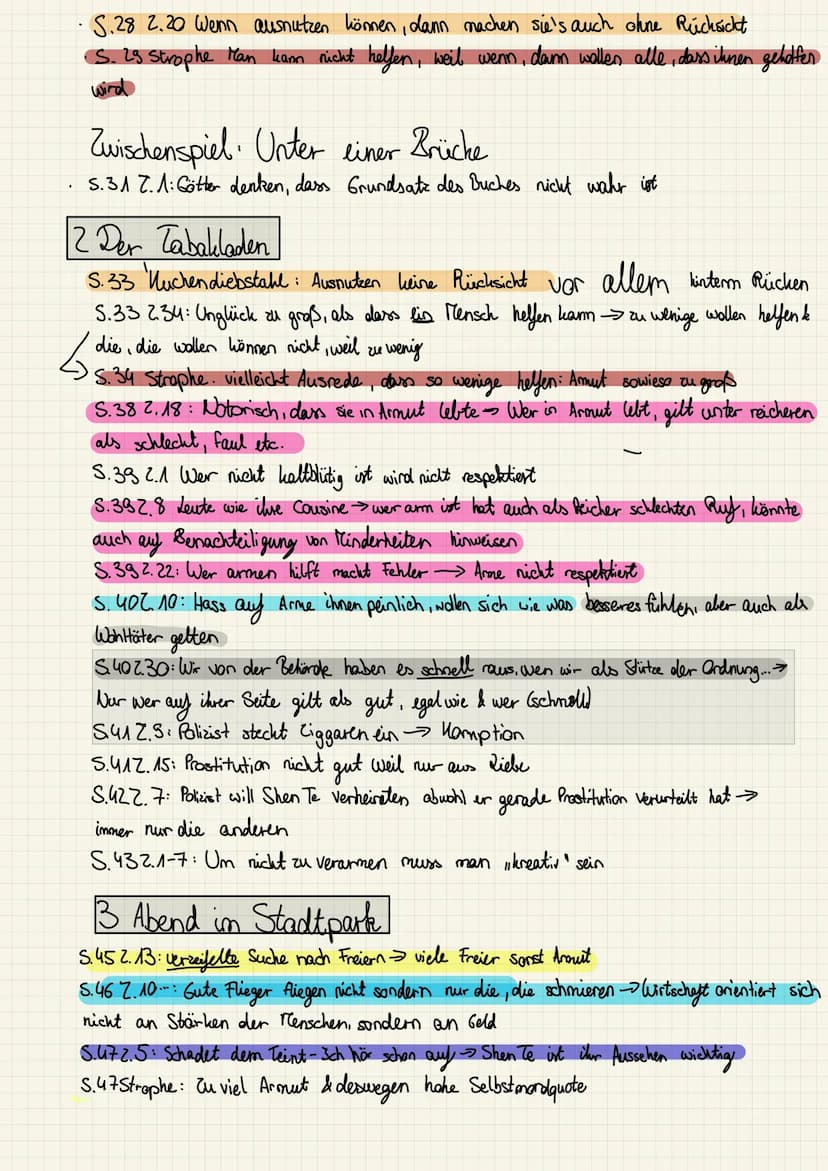 · S.28 Z.20 Wenn ausnutzen können, dann machen sie's auch ohne Rücksicht
· S. 29 Strophe Man kann nicht helfen, weil wenn, dann wollen alle, dass ihnen geholfen
wird
Zwischenspiel: Unter einer Brücke
· S.31 Z.1: Götter denken, dass Grundsatz des Buches nicht wahr ist
2 Der Tabakladen
S.33 Kuchendiebstahl: Ausnutzen keine Rücksicht vor allem hinterm Rücken
S.33 Z.34: Unglück zu groß, als dass ein Mensch helfen kann → zu wenige wollen helfen &
die, die wollen können nicht, weil zu wenig
S.34 Strophe. vielleicht Ausrede, dass so wenige helfen: Armut sowieso zu groß
S.38 Z.18: Notorisch, dass sie in Armut lebte → Wer in Armut lebt, gilt unter reicheren
als schlecht, faul etc.
S.39 Z.1 Wer nicht kaltblütig ist wird nicht respektiert
S.39 Z.8 Leute wie ihre Cousine → wer arm ist hat auch als Reicher schlechten Ruf, könnte
auch auf Benachteiligung von Minderheiten hinweisen
S.39 Z.22: Wer armen hilft macht Fehler → Arme nicht respektiert
S. 40 Z.10: Hass auf Arme ihnen peinlich, wollen sich wie was besseres fühlen, aber auch als
Wohltäter gelten
S.40 Z.30: Wir von der Behörde haben es schnell raus, wen wir als Stütze der Ordnung...→
Nur wer auf ihrer Seite gilt als gut, egal wie & wer (schnell)
S.41 Z.9: Polizist steckt Ziggaren ein → Korruption
S.41 Z.15: Prostitution nicht gut weil nur aus Liebe
S.42 Z.7: Polizist will Shen Te verheiraten obwohl er gerade Prostitution verurteilt hat →
immer nur die anderen
S.43 Z.1-7: Um nicht zu verarmen muss man „kreativ" sein
3 Abend im Stadtpark
S.45 Z.13: verzeifelte Suche nach Freiern → viele Freier sonst Armut
S.46 Z.10...: Gute Flieger fliegen nicht sondern nur die, die schmieren → Wirtschaft orientiert sich
nicht an Stärken der Menschen, sondern an Geld
S.47 Z.5: Schadet dem Teint - Ich hör schon auf → Shen Te ist ihr Aussehen wichtig
S.47 Strophe: Zu viel Armut & deswegen hohe Selbstmordquote